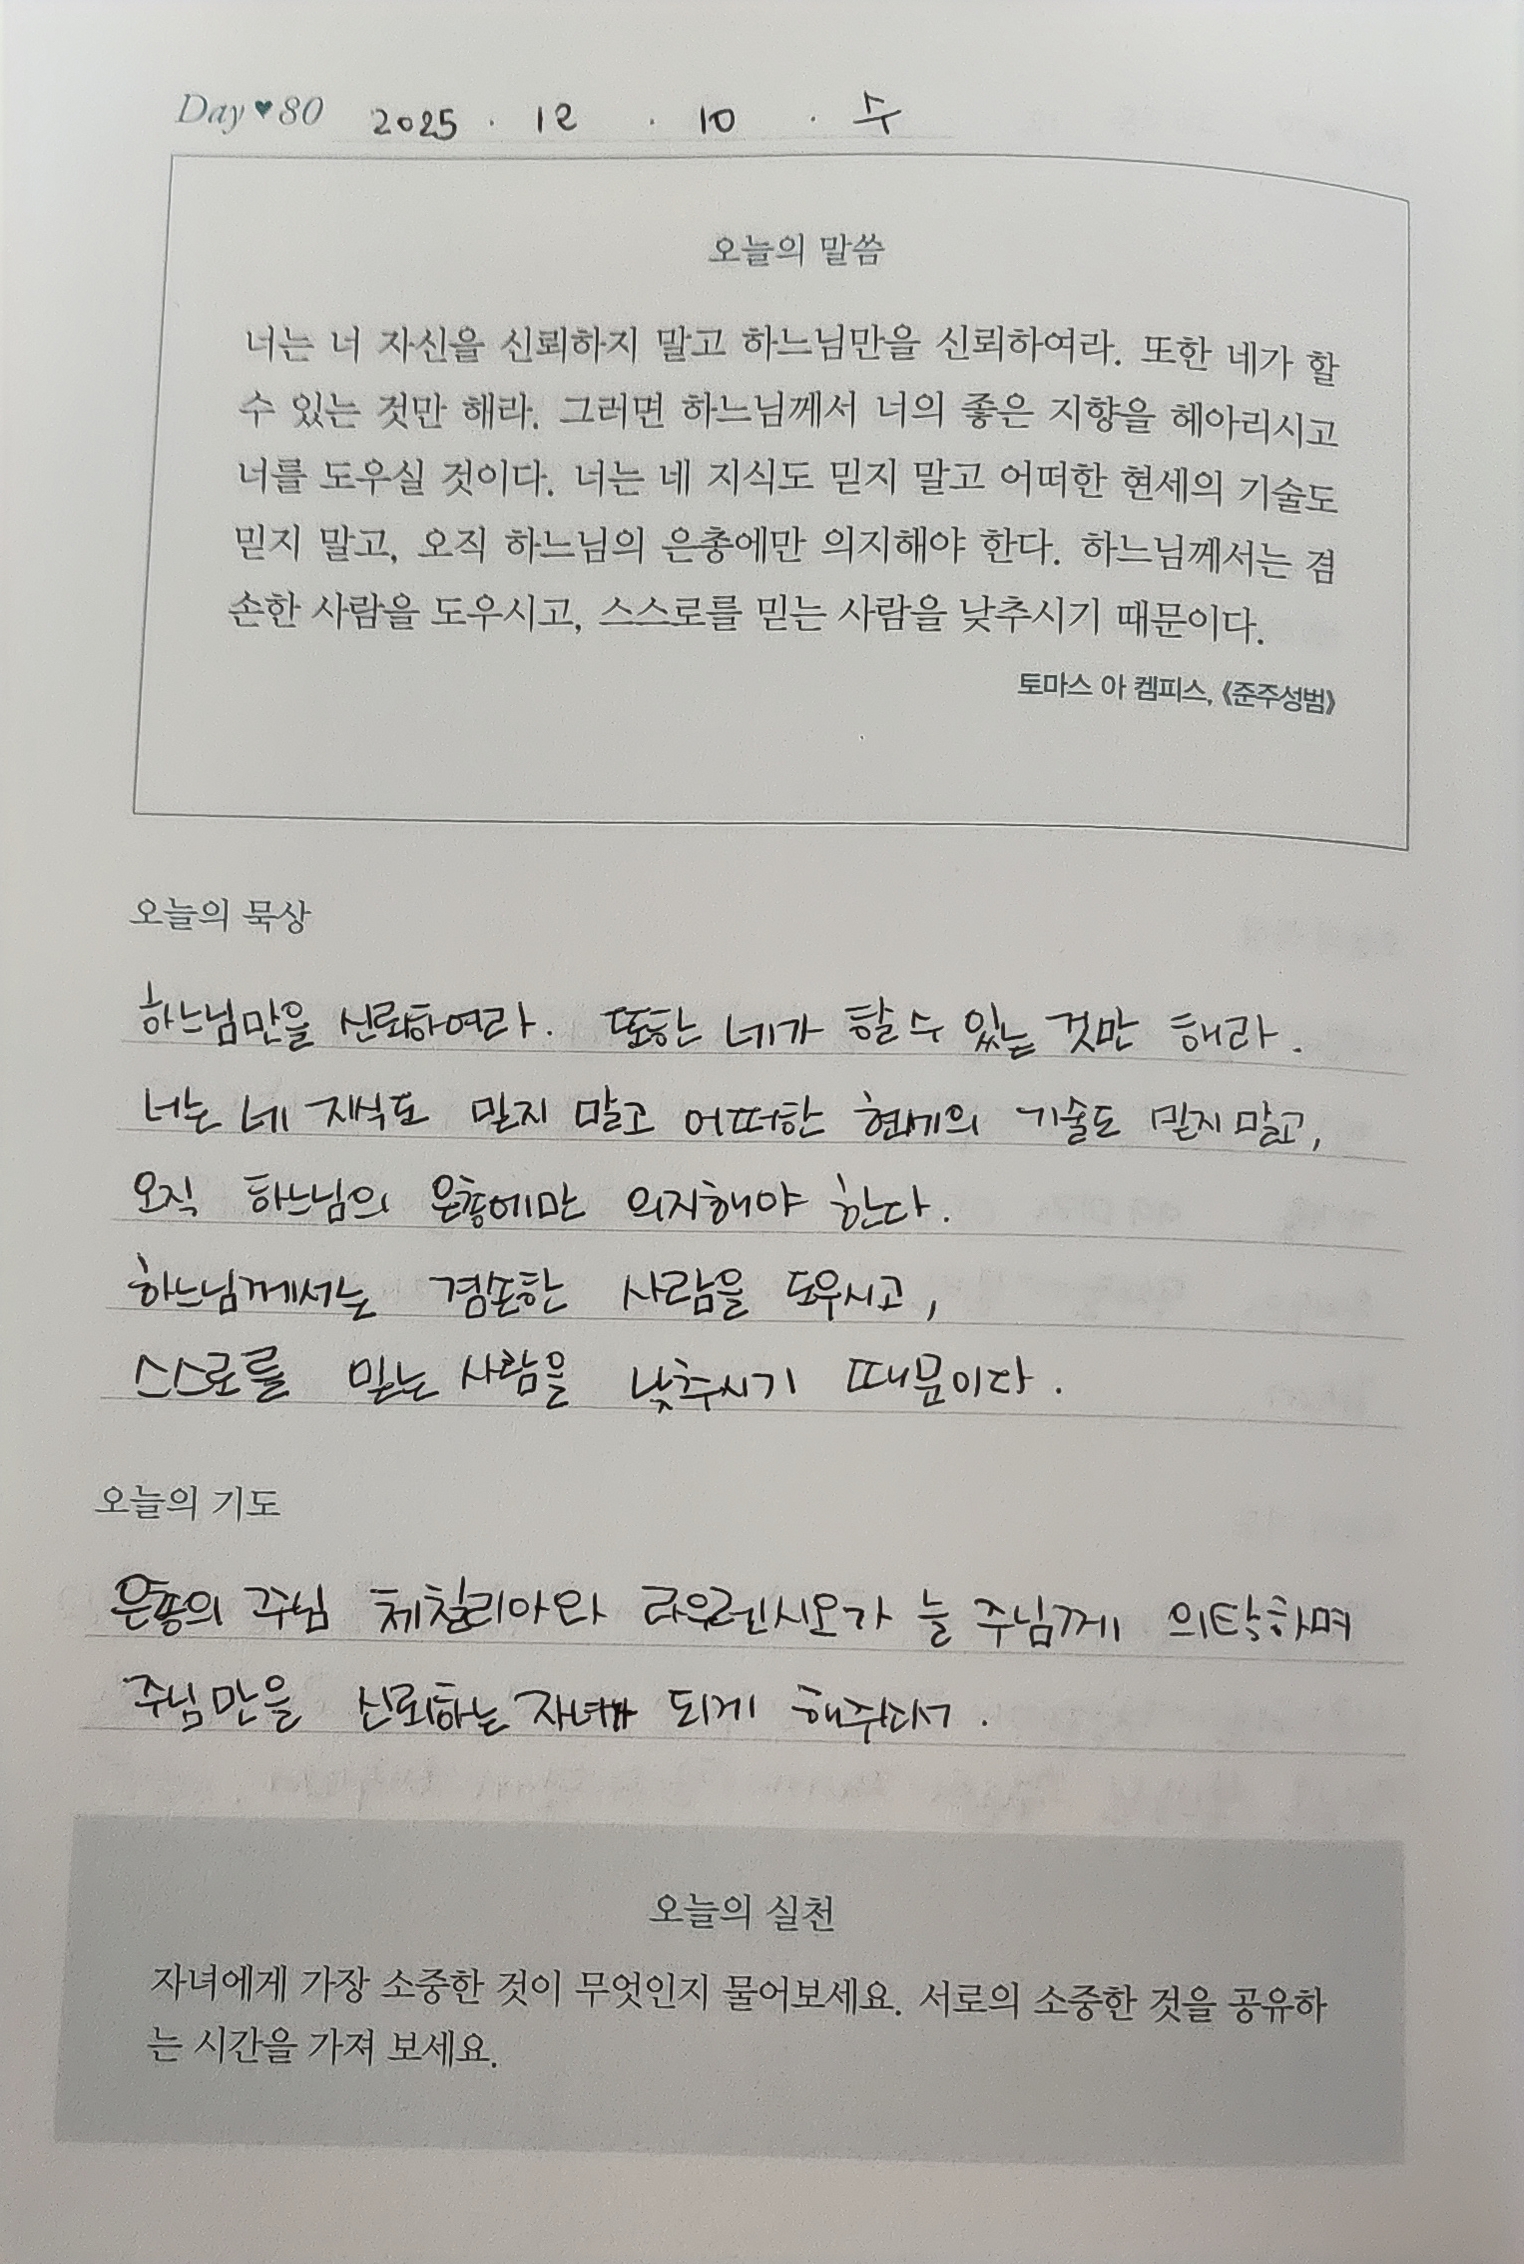 Day♥80 2025 . 12 . 10 . 수
오늘의 말씀
너는 너 자신을 신뢰하지 말고 하느님만을 신뢰하여라. 또한 네가 할
수 있는 것만 해라. 그러면 하느님께서 너의 좋은 지향을 헤아리시고
너를 도우실 것이다. 너는 네 지식도 믿지 말고 어떠한 현세의 기술도
믿지 말고, 오직 하느님의 은총에만 의지해야 한다. 하느님께서는 겸
손한 사람을 도우시고, 스스로를 믿는 사람을 낮추시기 때문이다.
토마스 아 켐피스, 《준주성범》
오늘의 묵상
하느님만을 신뢰하여라. 또한 네가 할 수 있는 것만 해라.
너는 네 지식도 믿지 말고 어떠한 현세의 기술도 믿지 말고,
오직 하느님의 은총에만 의지해야 한다.
하느님께서는 겸손한 사람을 도우시고,
스스로를 믿는 사람을 낮추시기 때문이다.
오늘의 기도
은총의 주님 체칠리아와 라우렌시오가 늘 주님께 의탁하며
주님만을 신뢰하는 자녀가 되게 해주다서.
오늘의 실천
자녀에게 가장 소중한 것이 무엇인지 물어보세요. 서로의 소중한 것을 공유하
는 시간을 가져 보세요.